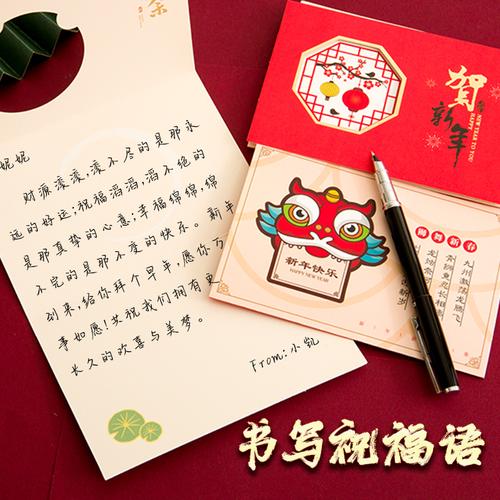 余
妮妮
财源滚滚,滚不尽的是那永
远的好运;祝福滔滔,滔不绝的
是那真挚的心意;幸福绵绵,绵
不完的是那不变的快乐。新年
到来,给你拜个早年,愿你万
事如愿!共祝我们拥有更
长久的欢喜与美梦。
From:小凯
贺
新年
HAPPY NEW YEAR TO YOU
狮舞新春
九州激荡龙腾飞
新年快乐
HAPPY NEW YEAR
书写祝福语